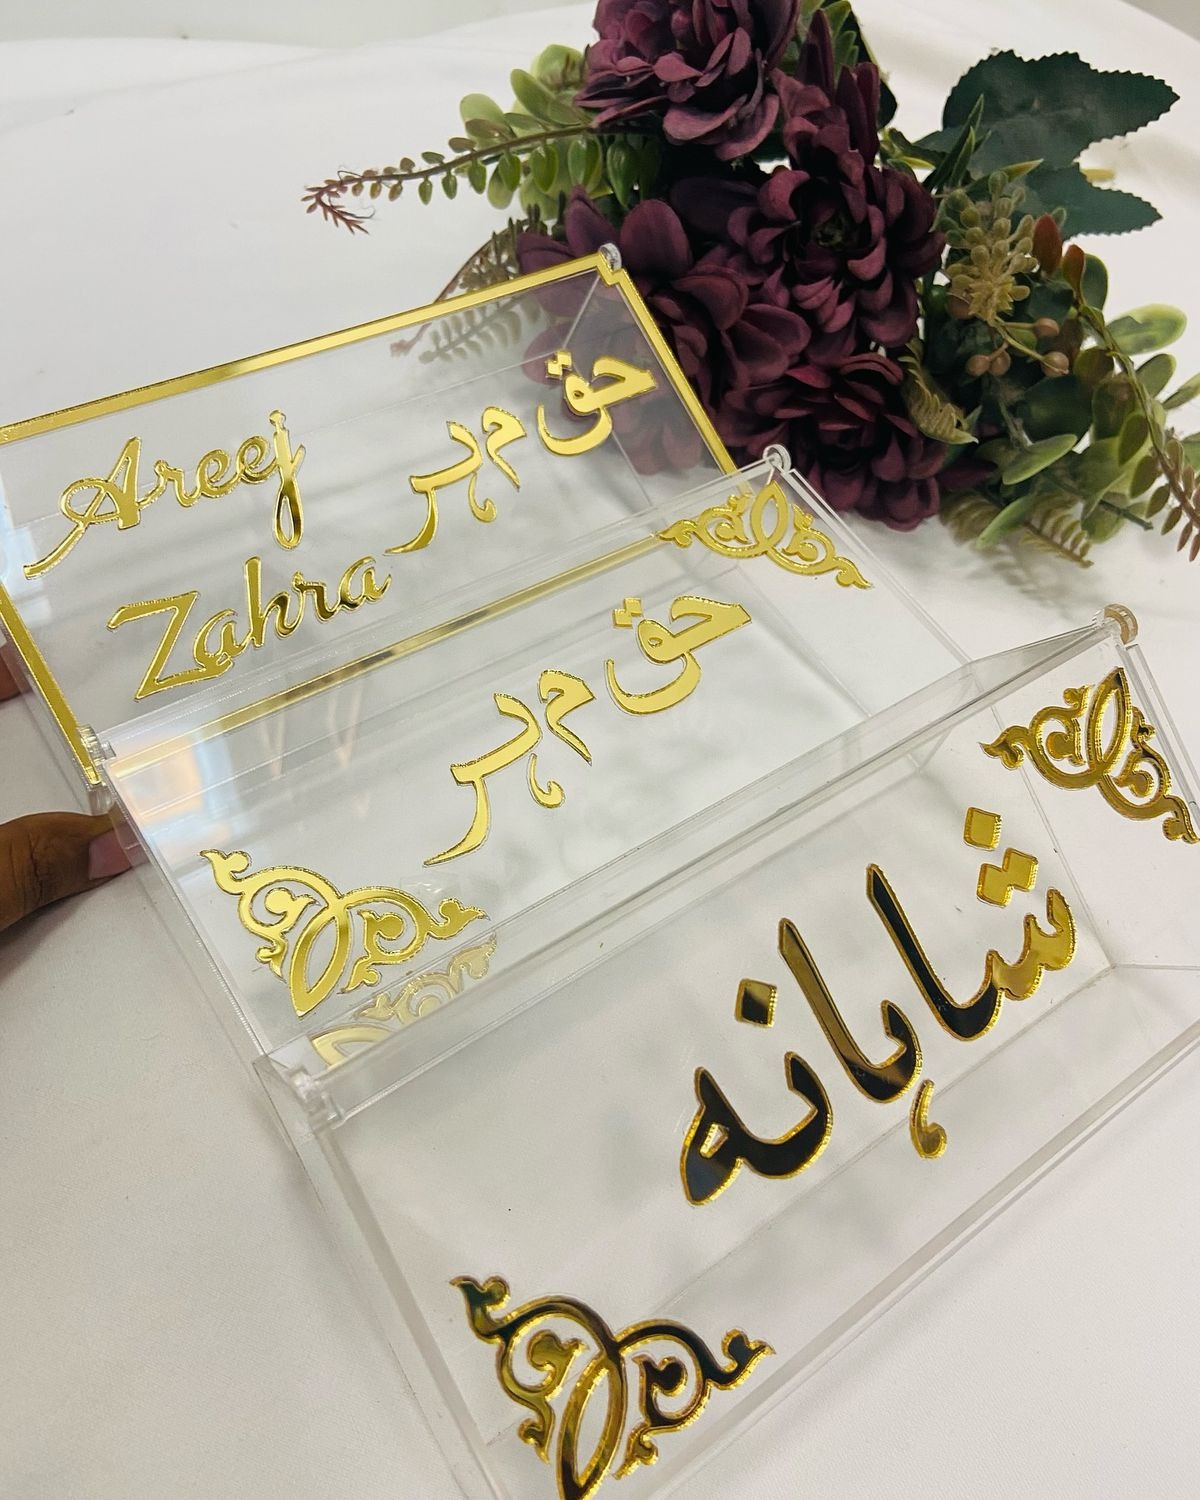 Areej
Zahra
حق مہر
حق مہر
شاہانہ